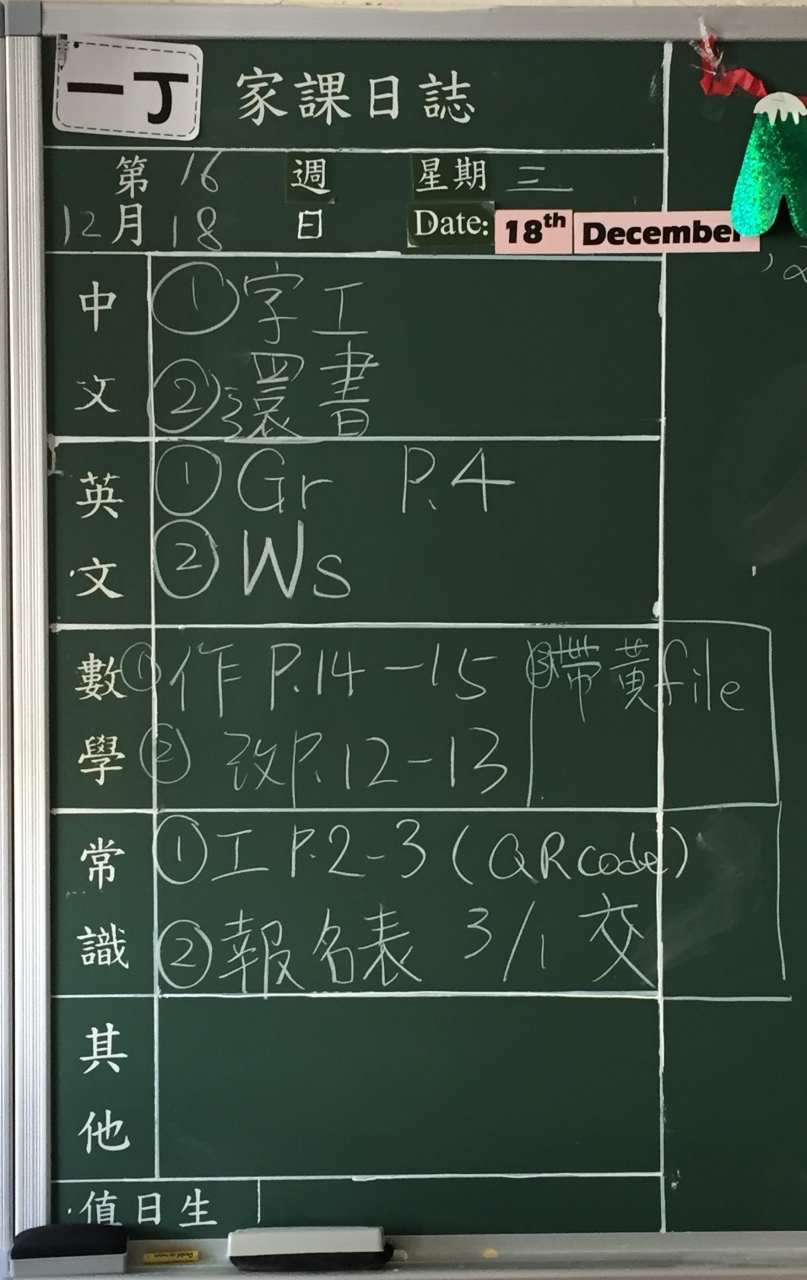 一丁 家課日誌
第 16 週 星期 三
12月 18 日 Date: 18th December
中文 ① 字工
② 還書
英文 ① Gr P.4
② Ws
數學 ① 作 P.14-15 ③ 帶黃file
② 改P.12-13
常識 ① 工 P.2-3 (QR code)
② 報名表 3/1 交
其他
值日生